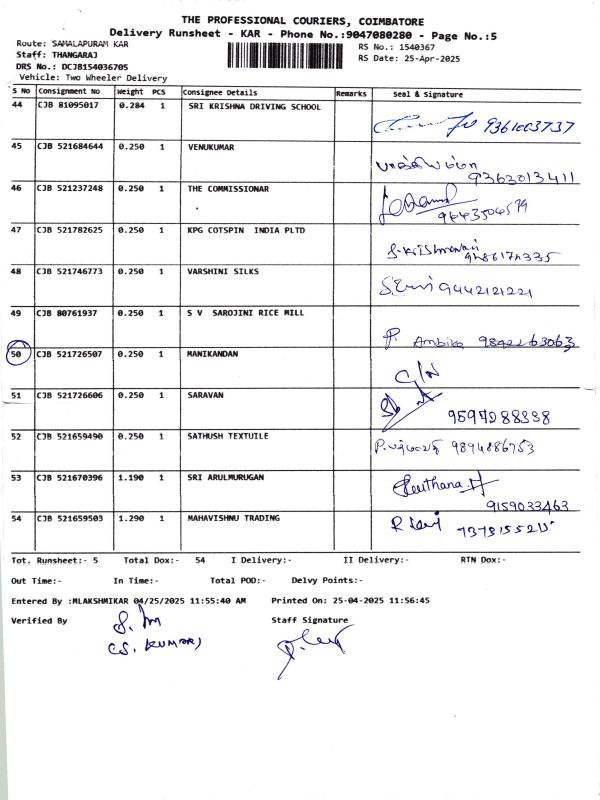 THE PROFESSIONAL COURIERS, COIMBATORE
Delivery Runsheet - KAR - Phone No.:9047080280 - Page No.:5
Route: SAMALAPURAM KAR
RS No.: 1540367
Staff: THANGARAJ
RS Date: 25-Apr-2025
DRS No.: DCJB154036705
Vehicle: Two Wheeler Delivery
S No Consignment No Weight PCS Consignee Details Remarks Seal & Signature
44 CJB 81095017 0.284 1 SRI KRISHNA DRIVING SCHOOL
9361003737
45 CJB 521684644 0.250 1 VENUKUMAR
9363013411
46 CJB 521237248 0.250 1 THE COMMISSIONAR
47 CJB 521782625 0.250 1 KPG COTSPIN INDIA PLTD
48 CJB 521746773 0.250 1 VARSHINI SILKS
9442121221
49 CJB 80761937 0.250 1 S V SAROJINI RICE MILL
P. Ambika 9842263063
50 CJB 521726507 0.250 1 MANIKANDAN
C/N
51 CJB 521726606 0.250 1 SARAVAN
52 CJB 521659490 0.250 1 SATHUSH TEXTUILE
9894886753
53 CJB 521670396 1.190 1 SRI ARULMURUGAN
9159033463
54 CJB 521659503 1.290 1 MAHAVISHNU TRADING
Tot. Runsheet:- 5 Total Dox:- 54 I Delivery:- II Delivery:- RTN Dox:-
Out Time:- In Time:- Total POD:- Delvy Points:-
Entered By :MLAKSHMIKAR 04/25/2025 11:55:40 AM Printed On: 25-04-2025 11:56:45
Verified By Staff Signature
(S. KUMAR)